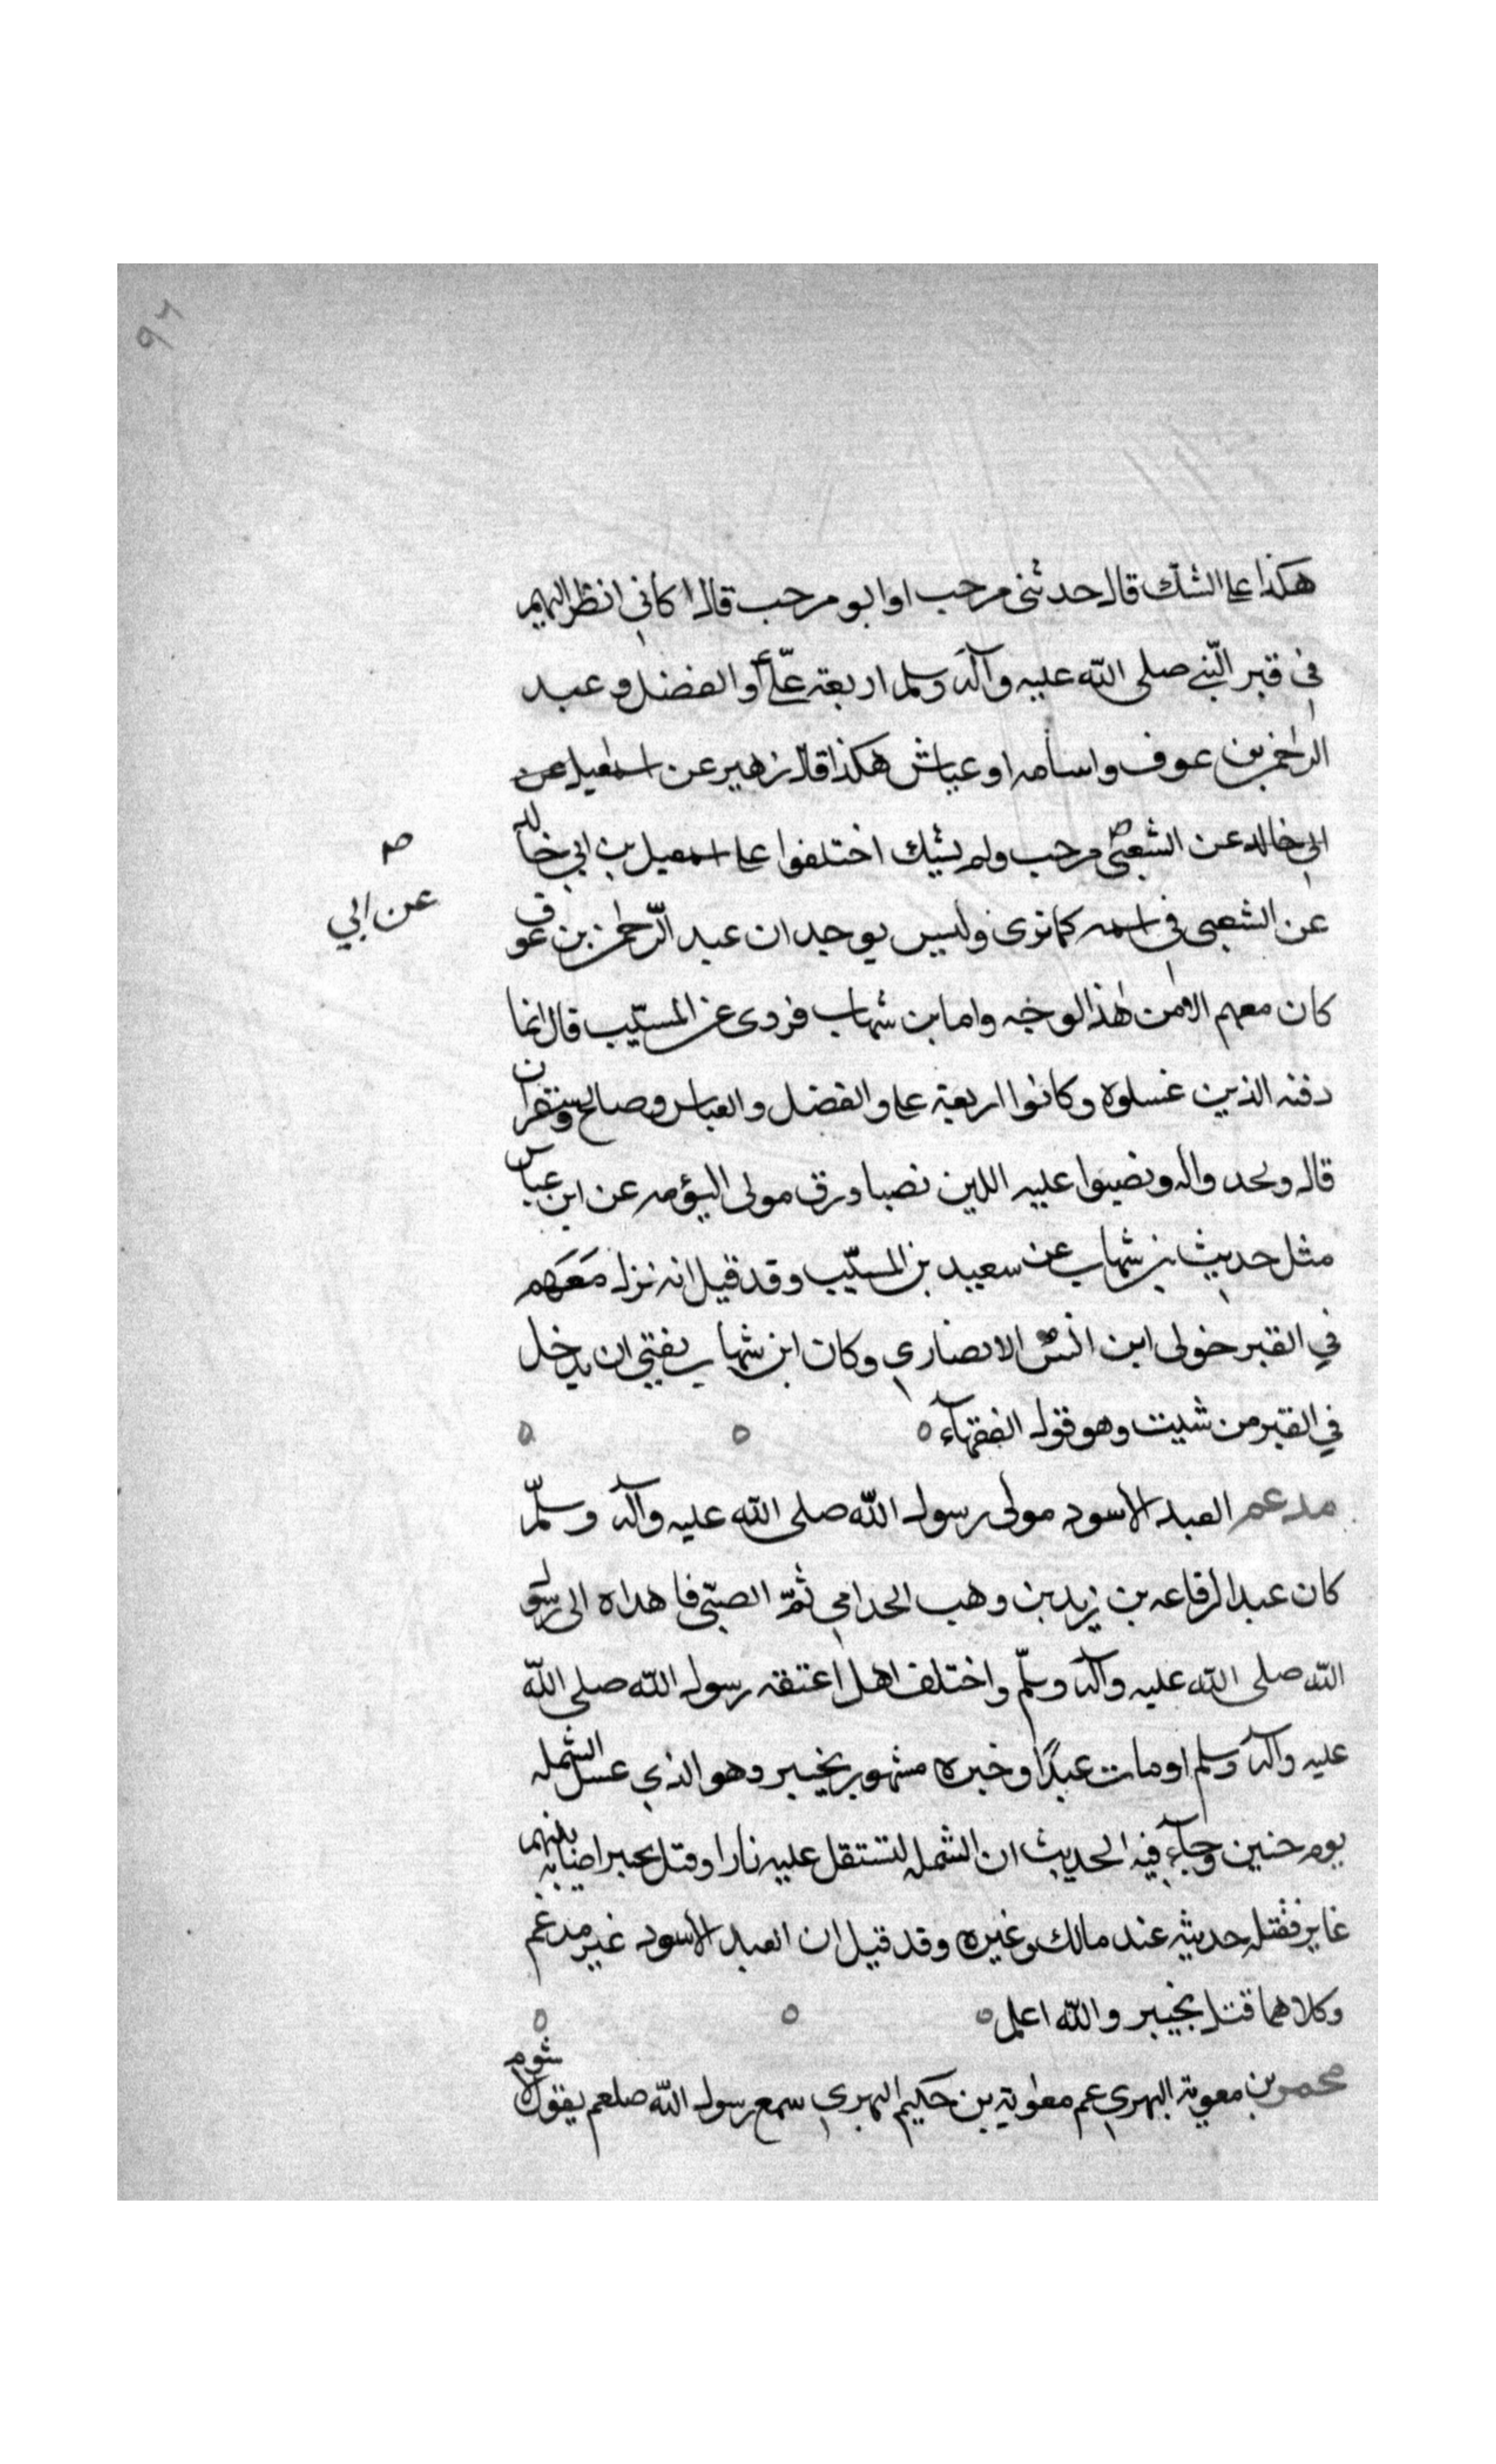 ٩٦
هكذا على الشك قال حدثنى مرحب او ابو مرحب قال كأني انظر اليهم
فى قبر النّبي صلى الله عليه وآله وسلم اربعة علّى أو الفضل و عبد
الرحمن بن عوف واسامه او عياش هكذا قال زهير عن اسمعيل عن
ابي خالد عن الشعبي مرحب ولم يشك اختلفوا على اسمعيل بن ابي خالد
صح
عن ابي
عن الشعبى في اسمه كما ترى وليس يوجد ان عبد الرّحمن بن عوف
كان معهم الا من هذا لوجه واما بن شهاب فروى عن المسيّب قال انما
دفنه الذين غسلوه وكانوا اربعة على والفضل والعباس وصالح وشقران
قال ولحد واله ونصبوا عليه اللبن نصبا ورق مولى اليؤمه عن ابن عباس
مثل حديث بن شهاب عن سعيد بن المسيّب وقد قيل انه نزل مَعَهم
في القبر خولى ابن انس الانصاري وكان ابن شهاب يفتي ان يدخل
في القبر من شيت وهو قول الفقهآء
مدعم العبد الاسود مولى رسول الله صلى الله عليه وآله وسلّم
كان عبدا لرفاعه بن زيد بن وهب الحدامي ثمّ الصبّى فاهداه الى رسول
الله صلى الله عليه وآله وسلّم واختلف اهل اعتقه رسول الله صلى الله
عليه وآله وسلم او مات عبدًا وخبره مشهور بخيبر وهو الذي عسل الشمله
يوم حنين وجآء فيه الحديث ان الشمله لتستقل عليه نارا وقتل بحيبر اصابه
غاير فقتله حديثه عند مالك وغيره وقد قيل ان العبد الاسود غير مدغم
وكلاهما قتل بخيبر والله اعلم
محمر بن معوية البهري عم معوية بن حكيم البهري سمع رسول الله صلعم يقول لا شوم